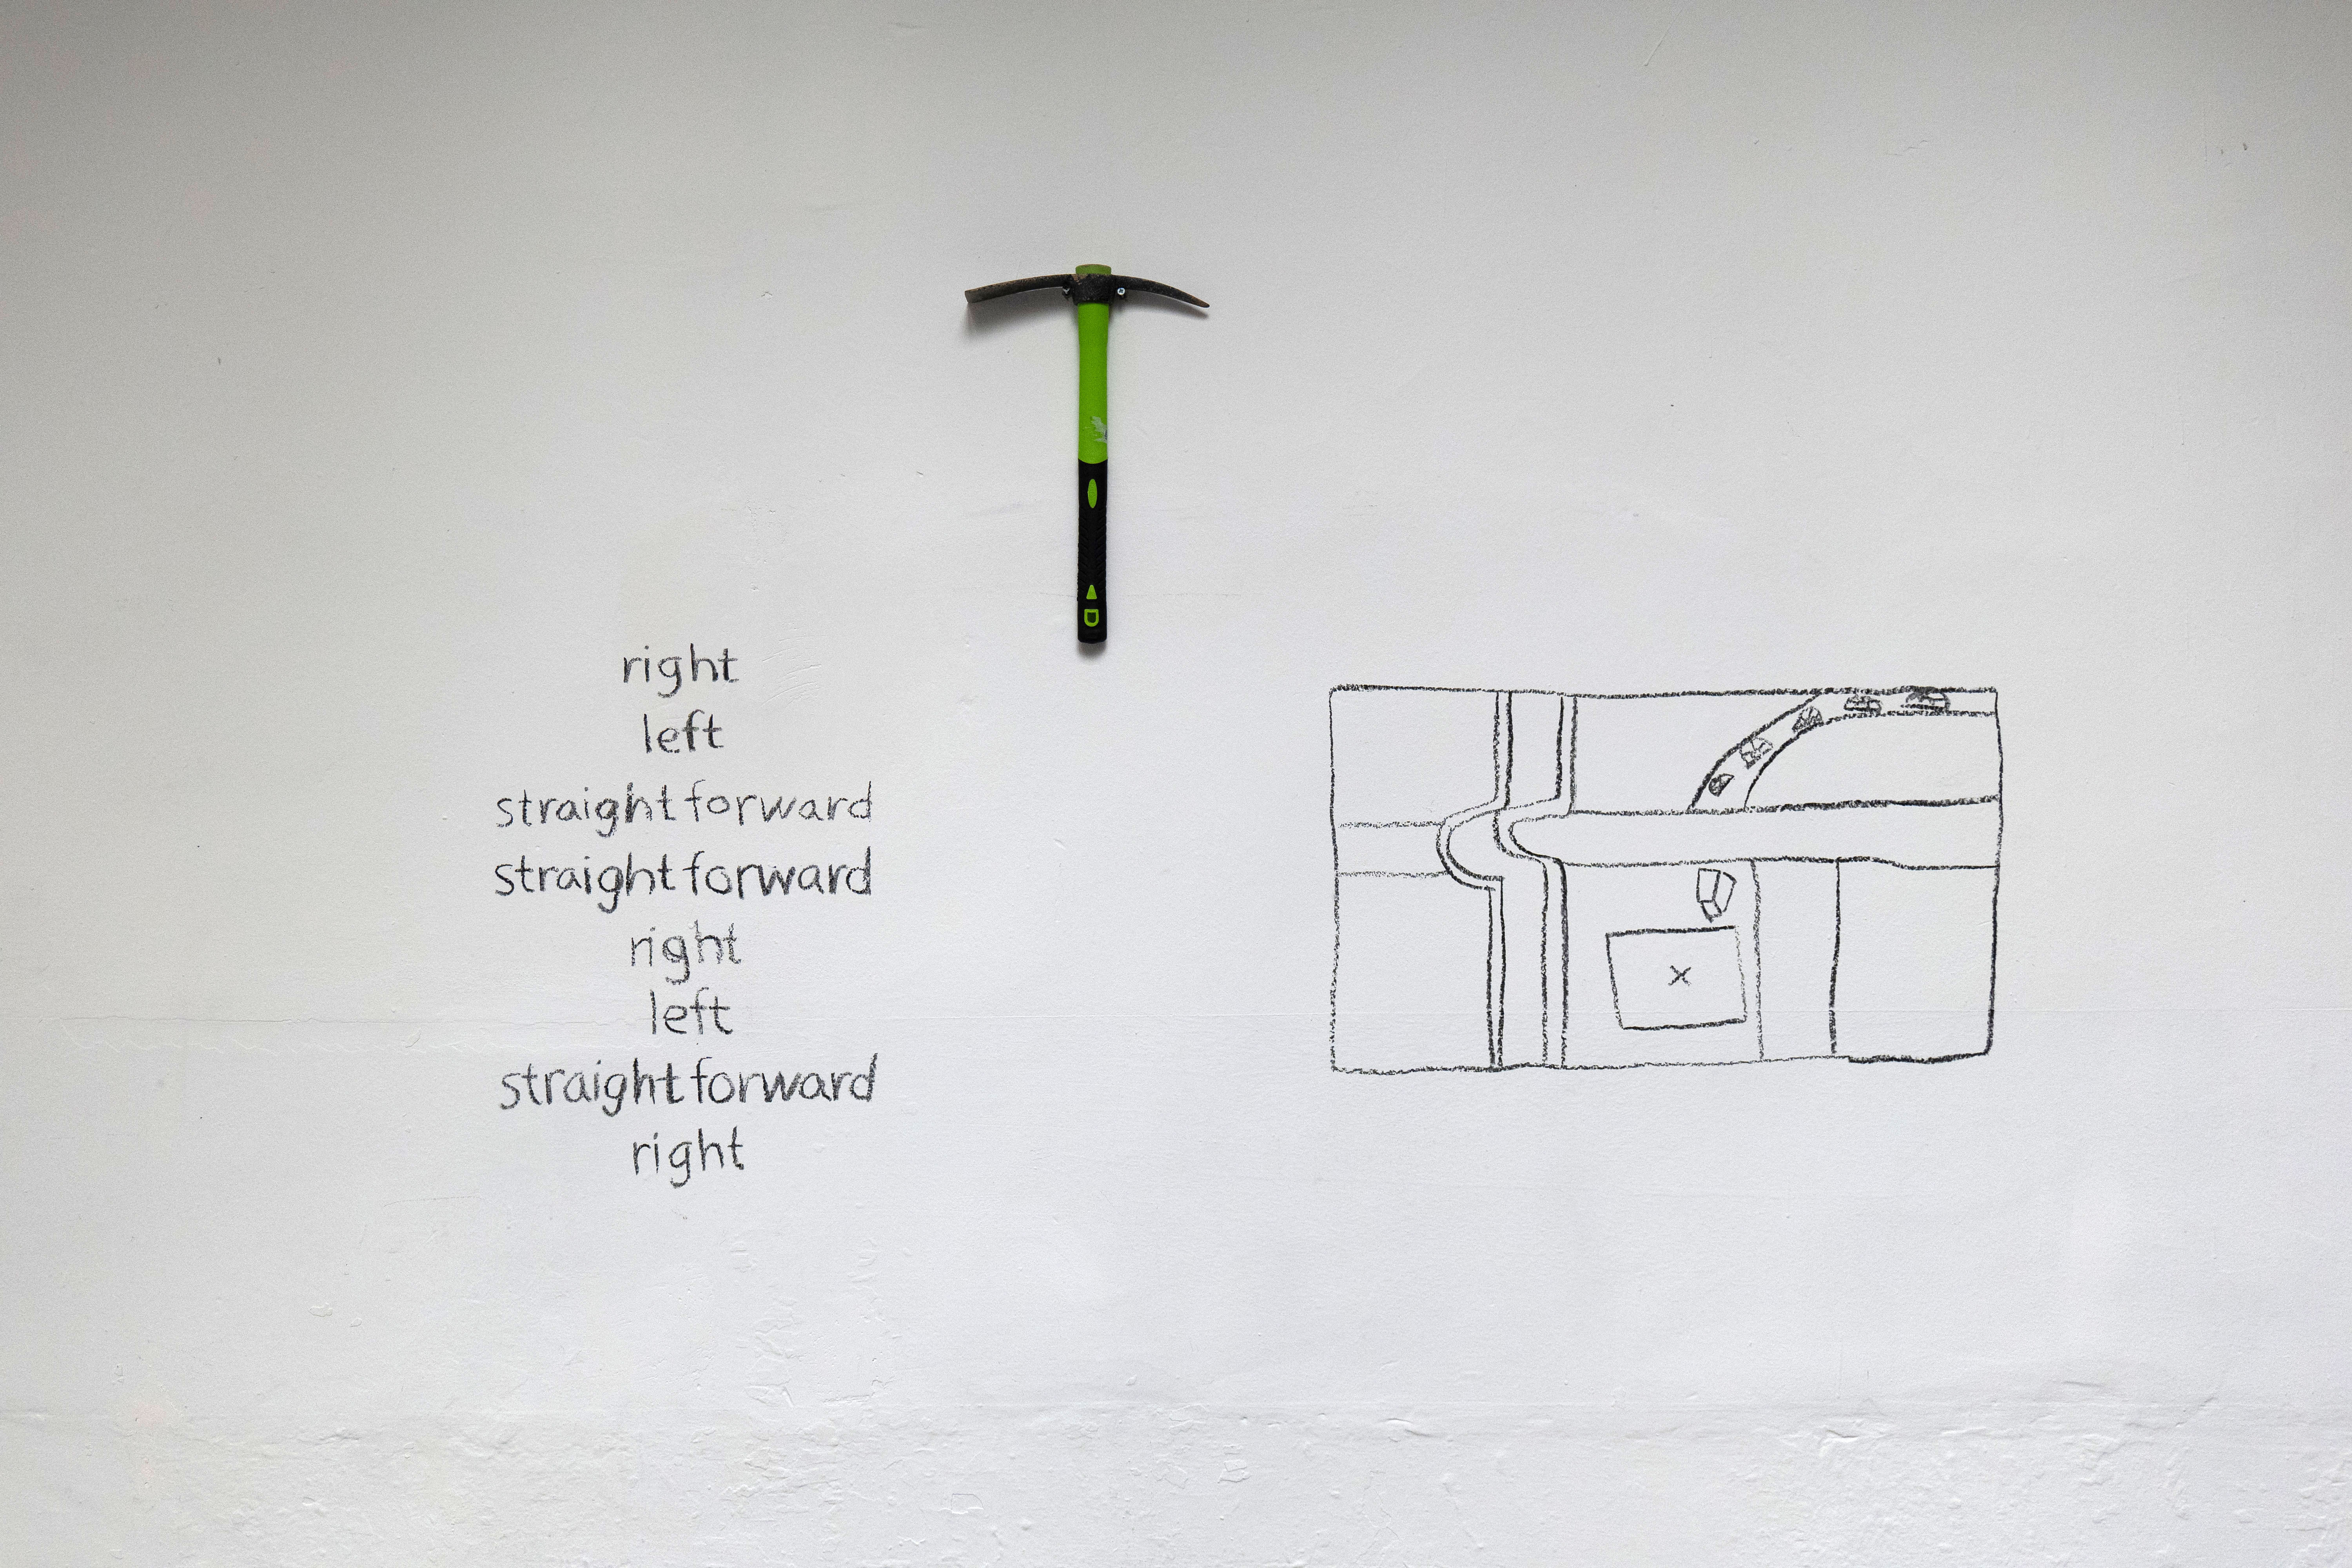 right
left
straight forward
straight forward
right
left
straight forward
right